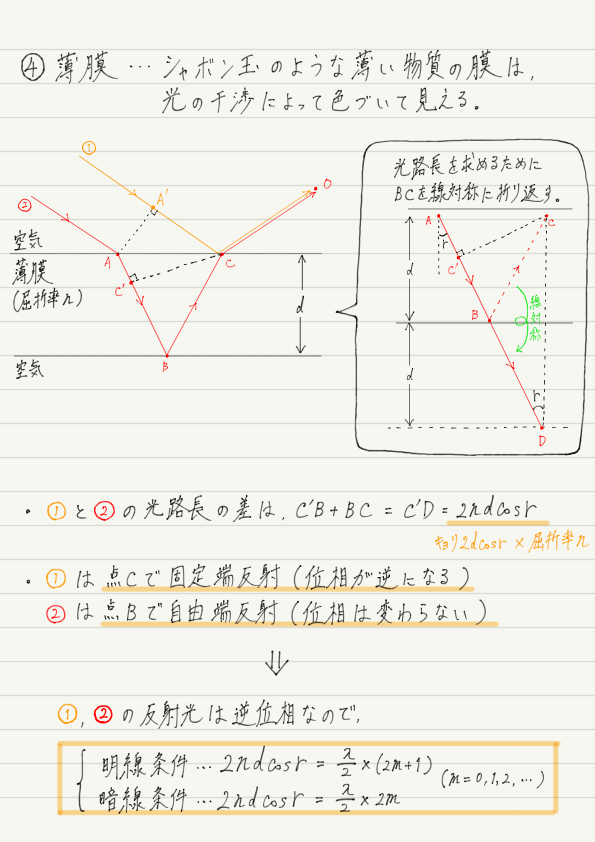 ④ 薄膜 … シャボン玉のような薄い物質の膜は,
光の干渉によって色づいて見える。
①
②
A'
O
空気
A
C
薄膜
(屈折率n)
C'
d
空気
B
光路長を求めるために
BCを線対称に折り返す。
A
C
r
C'
d
B
線対称
d
r
D
・①と②の光路長の差は, C'B+BC = C'D = 2ndcosr
キョリ2dcosr × 屈折率n
・①は点Cで固定端反射(位相が逆になる)
②は点Bで自由端反射(位相は変わらない)
⇓
①, ②の反射光は逆位相なので,
明線条件… 2ndcosr = λ/2 × (2m+1)
(m=0,1,2,…)
暗線条件… 2ndcosr = λ/2 × 2m